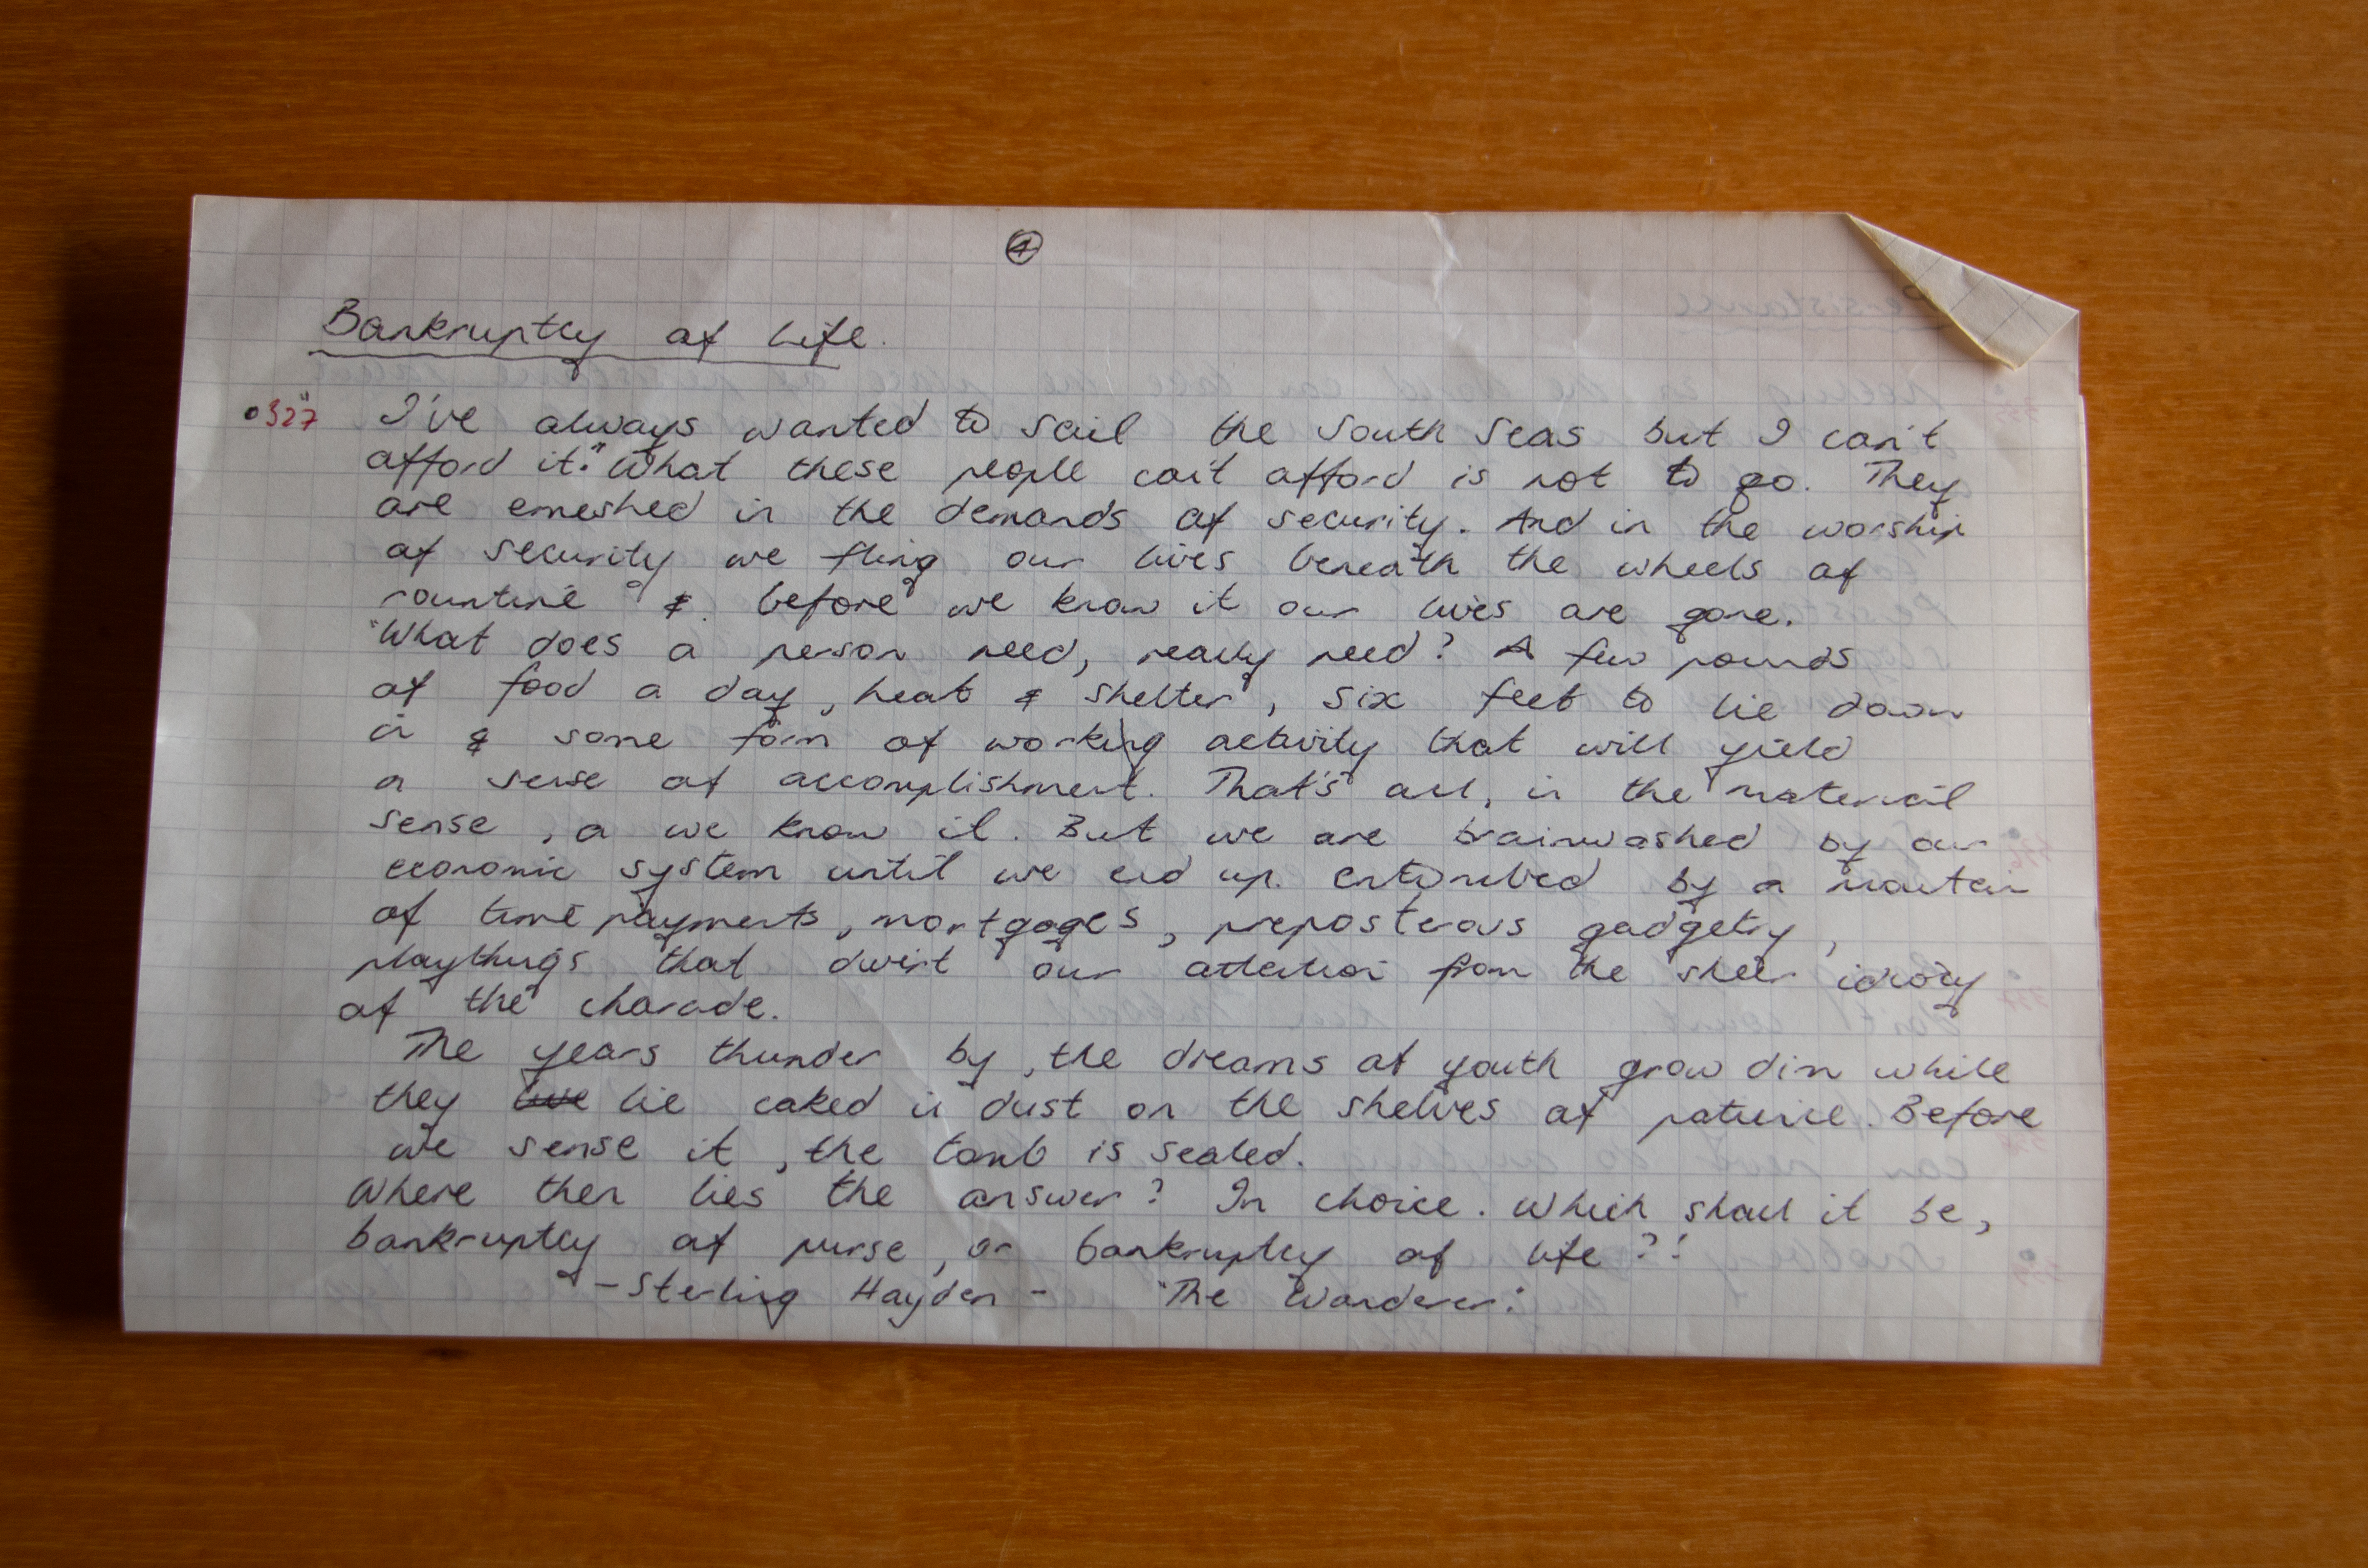 ④
Bankruptcy of Life.
•327 "I've always wanted to sail the South Seas but I can't
afford it." What these people can't afford is not to go. They
are emeshed in the demands of security. And in the worship
of security we fling our lives beneath the wheels of
rountine & before we know it our lives are gone.
"What does a person need, really need? A few pounds
of food a day, heat & shelter, six feet to lie down
in & some form of working activity that will yield
a sense of accomplishment. That's all, in the material
sense, a we know it. But we are brainwashed by our
economic system until we end up entombed by a mountain
of time payments, mortgages, preposterous gadgetry,
playthings that divert our attention from the sheer idiocy
of the charade.
The years thunder by, the dreams of youth grow dim while
they live lie caked in dust on the shelves of patience. Before
we sense it, the tomb is sealed.
Where then lies the answer? In choice. Which shall it be,
bankruptcy of purse, or bankruptcy of life?!
- Sterling Hayden - "The Wanderer."